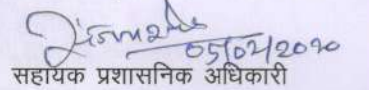 05/02/2020
सहायक प्रशासनिक अधिकारी